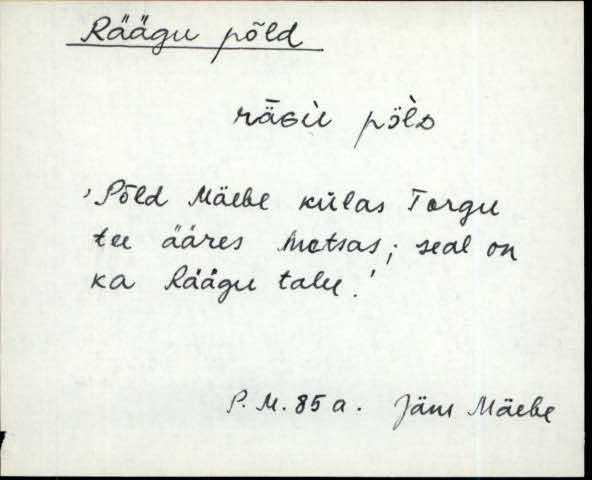 Räägu põld
räGù pö̀lD
'Põld Mäebe külas Torgu
tee ääres metsas; seal on
ka Räägu talu.'
P. M. 85 a. Jäm Mäebe